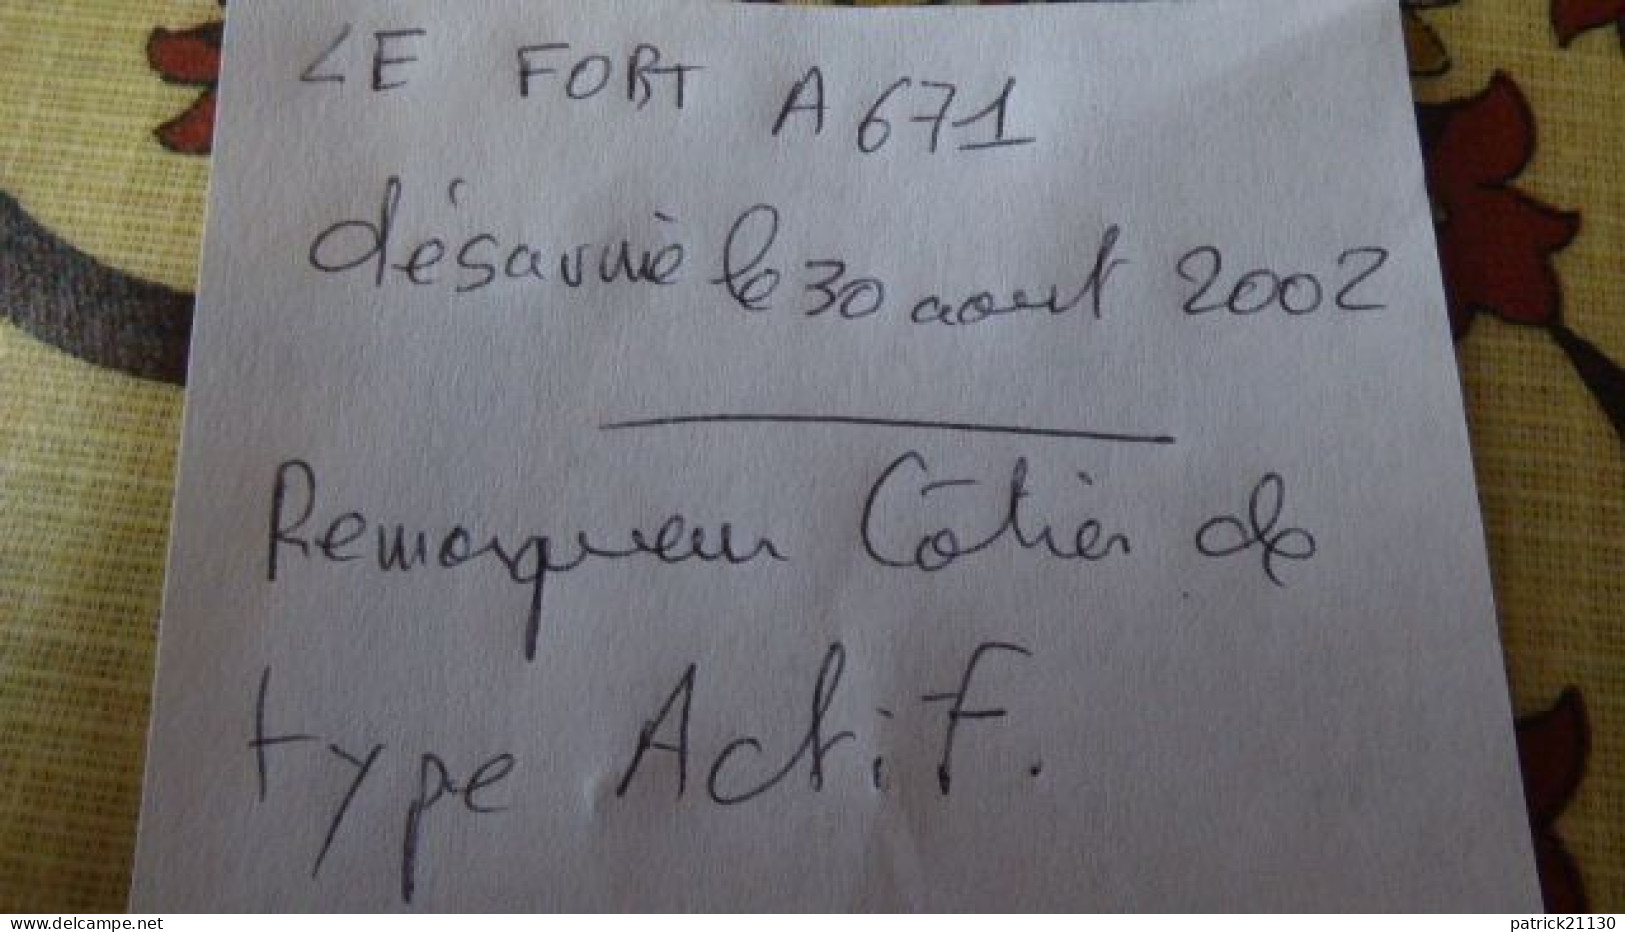 LE FORT A 671
désarmé le 30 aout 2002
Remorqueur Côtier de
type Actif.
www.delcampe.net
patrick21130